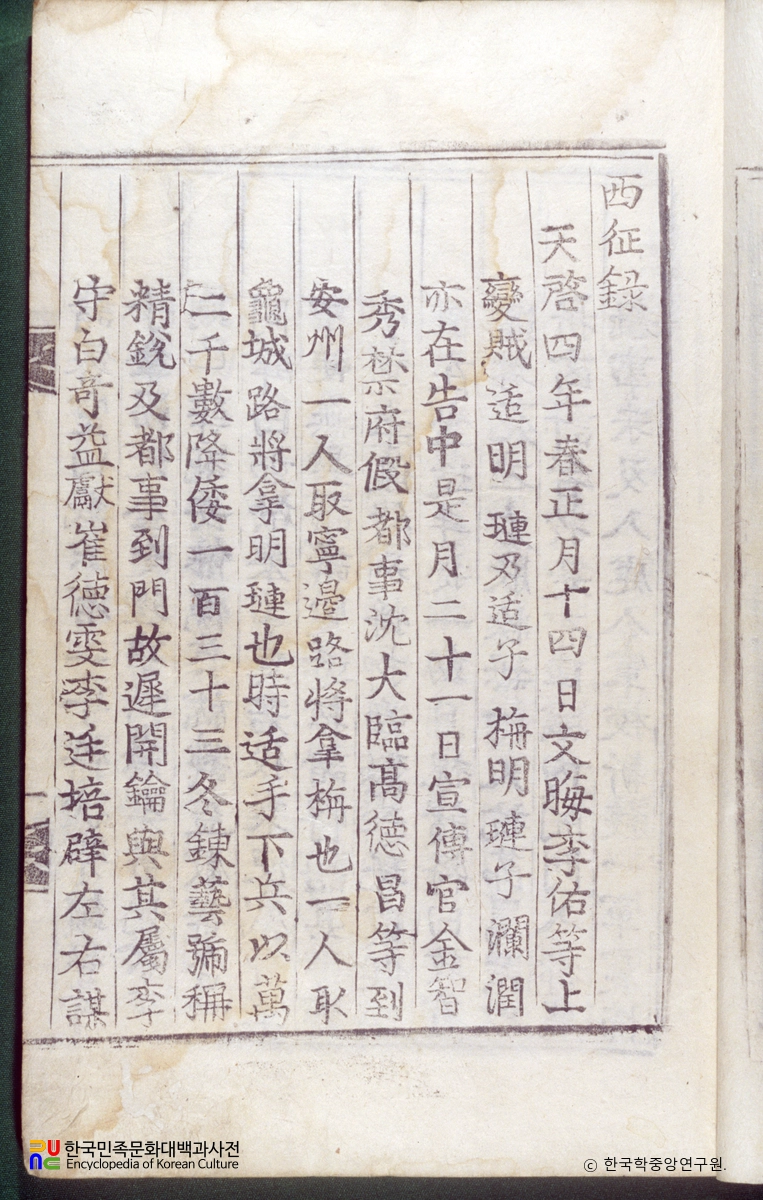 西征錄
天啓四年春正月十四日文晦李佑等上
變賊适明璉及适子栴明璉子瀾潤
亦在告中是月二十一日宣傳官金智
秀禁府假都事沈大臨高德昌等到
安州一人取寧邊路將拿栴也一人取
龜城路將拿明璉也時适手下兵以萬
二千數降倭一百三十三冬鍊藝號稱
精銳及都事到門故遲開鑰與其屬李
守白奇益獻崔德雯李廷培辟左右謀
한국민족문화대백과사전
Encyclopedia of Korean Culture
© 한국학중앙연구원.